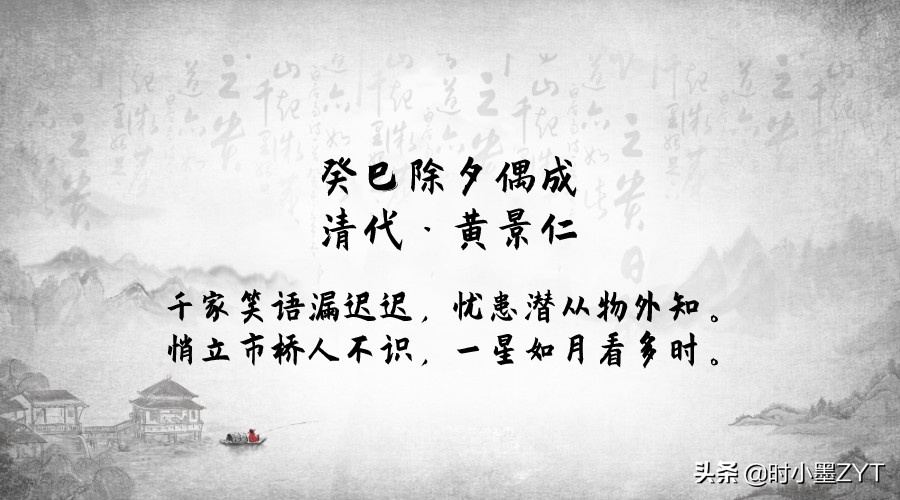 癸巳除夕偶成
清代·黄景仁
千家笑语漏迟迟，忧患潜从物外知。
悄立市桥人不识，一星如月看多时。
头条 @时小墨ZYT